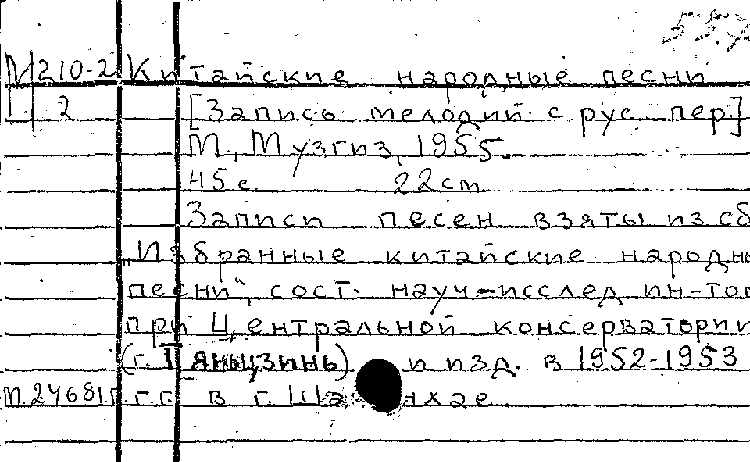 М210-2 Китайские народные песни
2 [Запись мелодий с рус. пер]
М., Музгиз, 1955.
45 с. 22 cm
Записи песен взяты из сб
"Избранные китайские народны
песни", сост. науч-исслед ин-том
при Центральной консерватории
(г. Тяньцзинь) и изд. в 1952-1953
п.24681 г.г. в г. Шанхае.